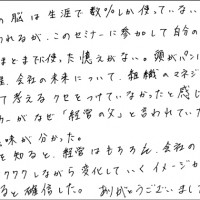 の脳は生涯で数%しか使っていない
われるが、このセミナーに参加して自分の
まともに使った憶えがない。頭がパン
、会社の未来について、組織のマネジ
て考えるクセをつけていなかったと感じ
カーがなぜ「経営の父」と言われていた
味が分かった。
を知ると、経営はもちろん、会社の
クワクしながら変化していくイメージが
ると確信した。 ありがとうございまし